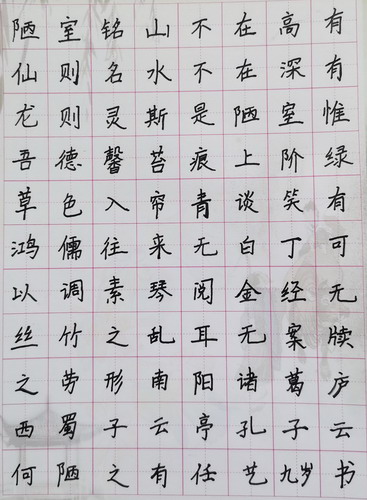 陋室铭山不在高有
仙则名水不在深有
龙则灵斯是陋室惟
吾德馨苔痕上阶绿
草色入帘青谈笑有
鸿儒往来无白丁可
以调素琴阅金经无
丝竹之乱耳无案牍
之劳形南阳诸葛庐
西蜀子云亭孔子云
何陋之有任艺九岁书